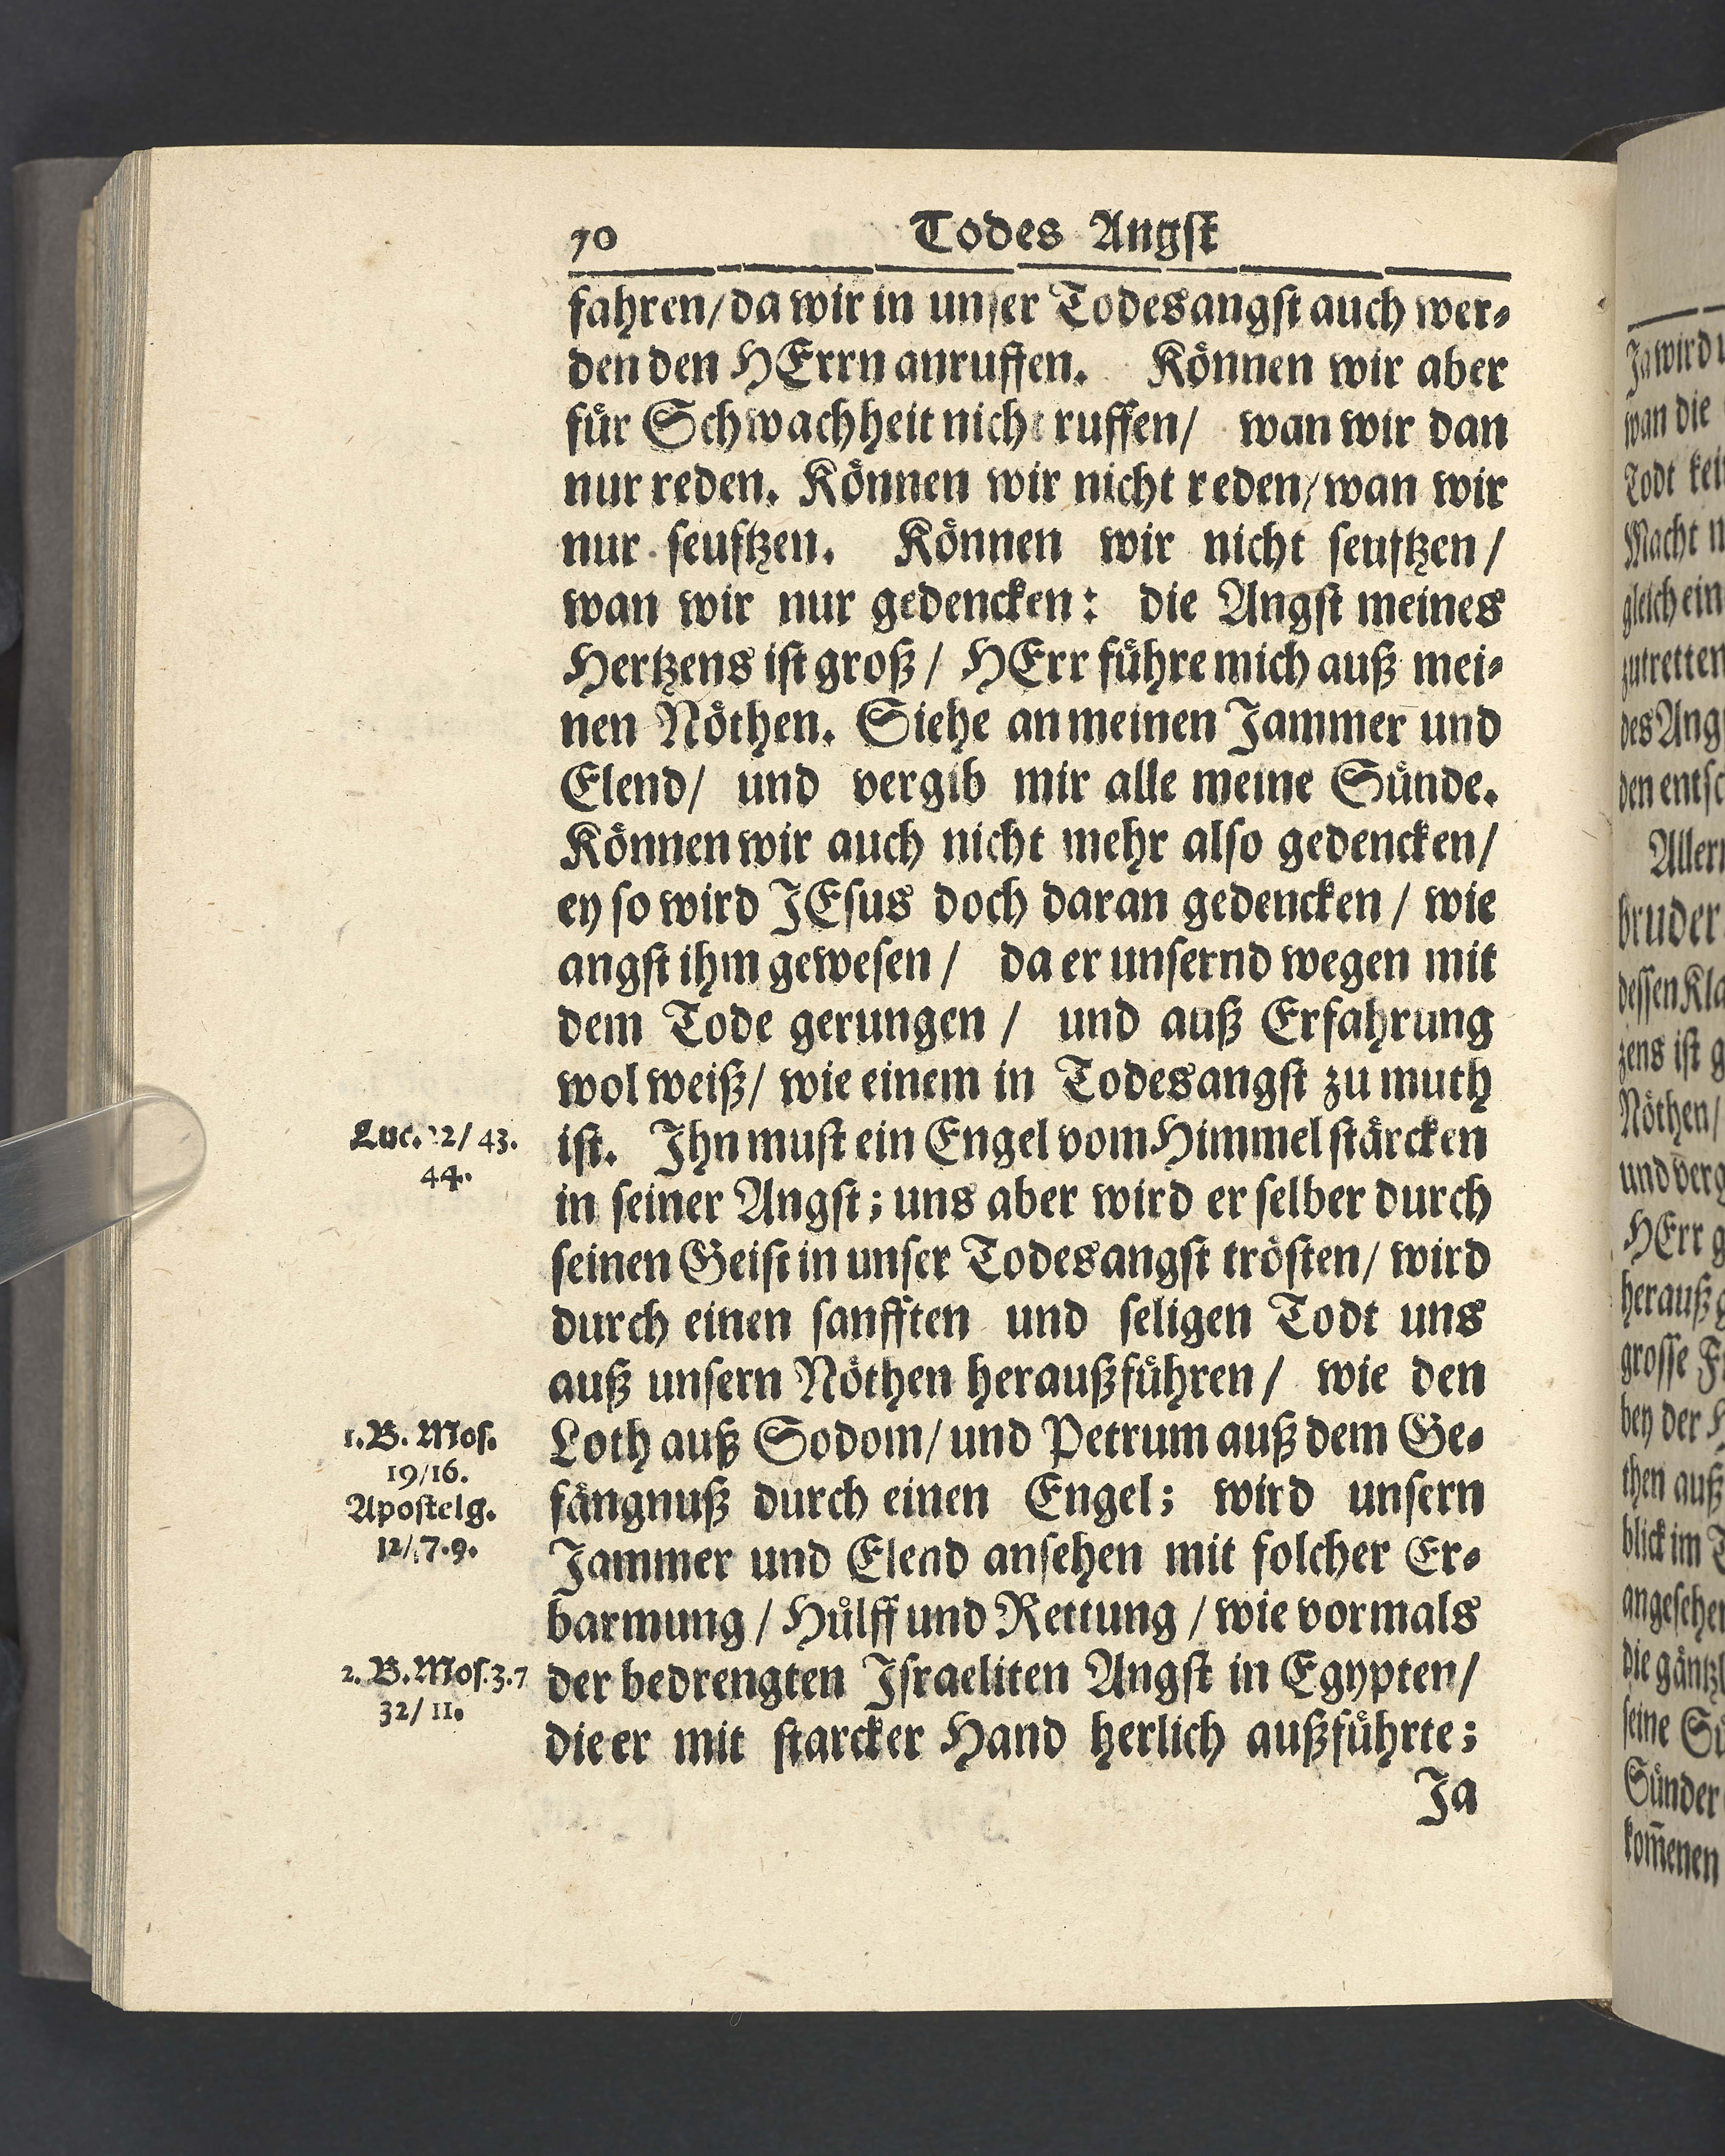 70 Todes Angst
fahren/ da wir in unser Todesangst auch wer-
den den HErrn anruffen. Können wir aber
für Schwachheit nicht ruffen/ wan wir dan
nur reden. Können wir nicht reden/ wan wir
nur seufftzen. Können wir nicht seufftzen/
wan wir nur gedencken: die Angst meines
Hertzens ist groß/ HErr führe mich auß mei-
nen Nöthen. Siehe an meinen Jammer und
Elend/ und vergib mir alle meine Sünde.
Können wir auch nicht mehr also gedencken/
ey so wird JEsus doch daran gedencken/ wie
angst ihm gewesen/ da er unsernd wegen mit
dem Tode gerungen/ und auß Erfahrung
wol weiß/ wie einem in Todesangst zu muth
ist. Ihn must ein Engel vom Himmel stärcken
in seiner Angst; uns aber wird er selber durch
seinen Geist in unser Todesangst trösten/ wird
durch einen sanfften und seligen Todt uns
auß unsern Nöthen heraußführen/ wie den
Loth auß Sodom/ und Petrum auß dem Ge-
fängnuß durch einen Engel; wird unsern
Jammer und Elend ansehen mit solcher Er-
barmung/ Hülff und Rettung/ wie vormals
der bedrengten Israeliten Angst in Egypten/
die er mit starcker Hand herlich außführte;
Ja
Luc. 22/ 43.
44.
1. B. Mos.
19/16.
Apostelg.
12/ 7. 9.
2. B. Mos. 3. 7
32/ 11.
Ja wird
wan die
Todt
Macht
gleich ein
zutretten
Aller
bruder
dessen
zens ist
Nöthen/
und
HErr
herauß
grosse
bey der
then auß
blick im
die
seine
Sünder
kom̃enen